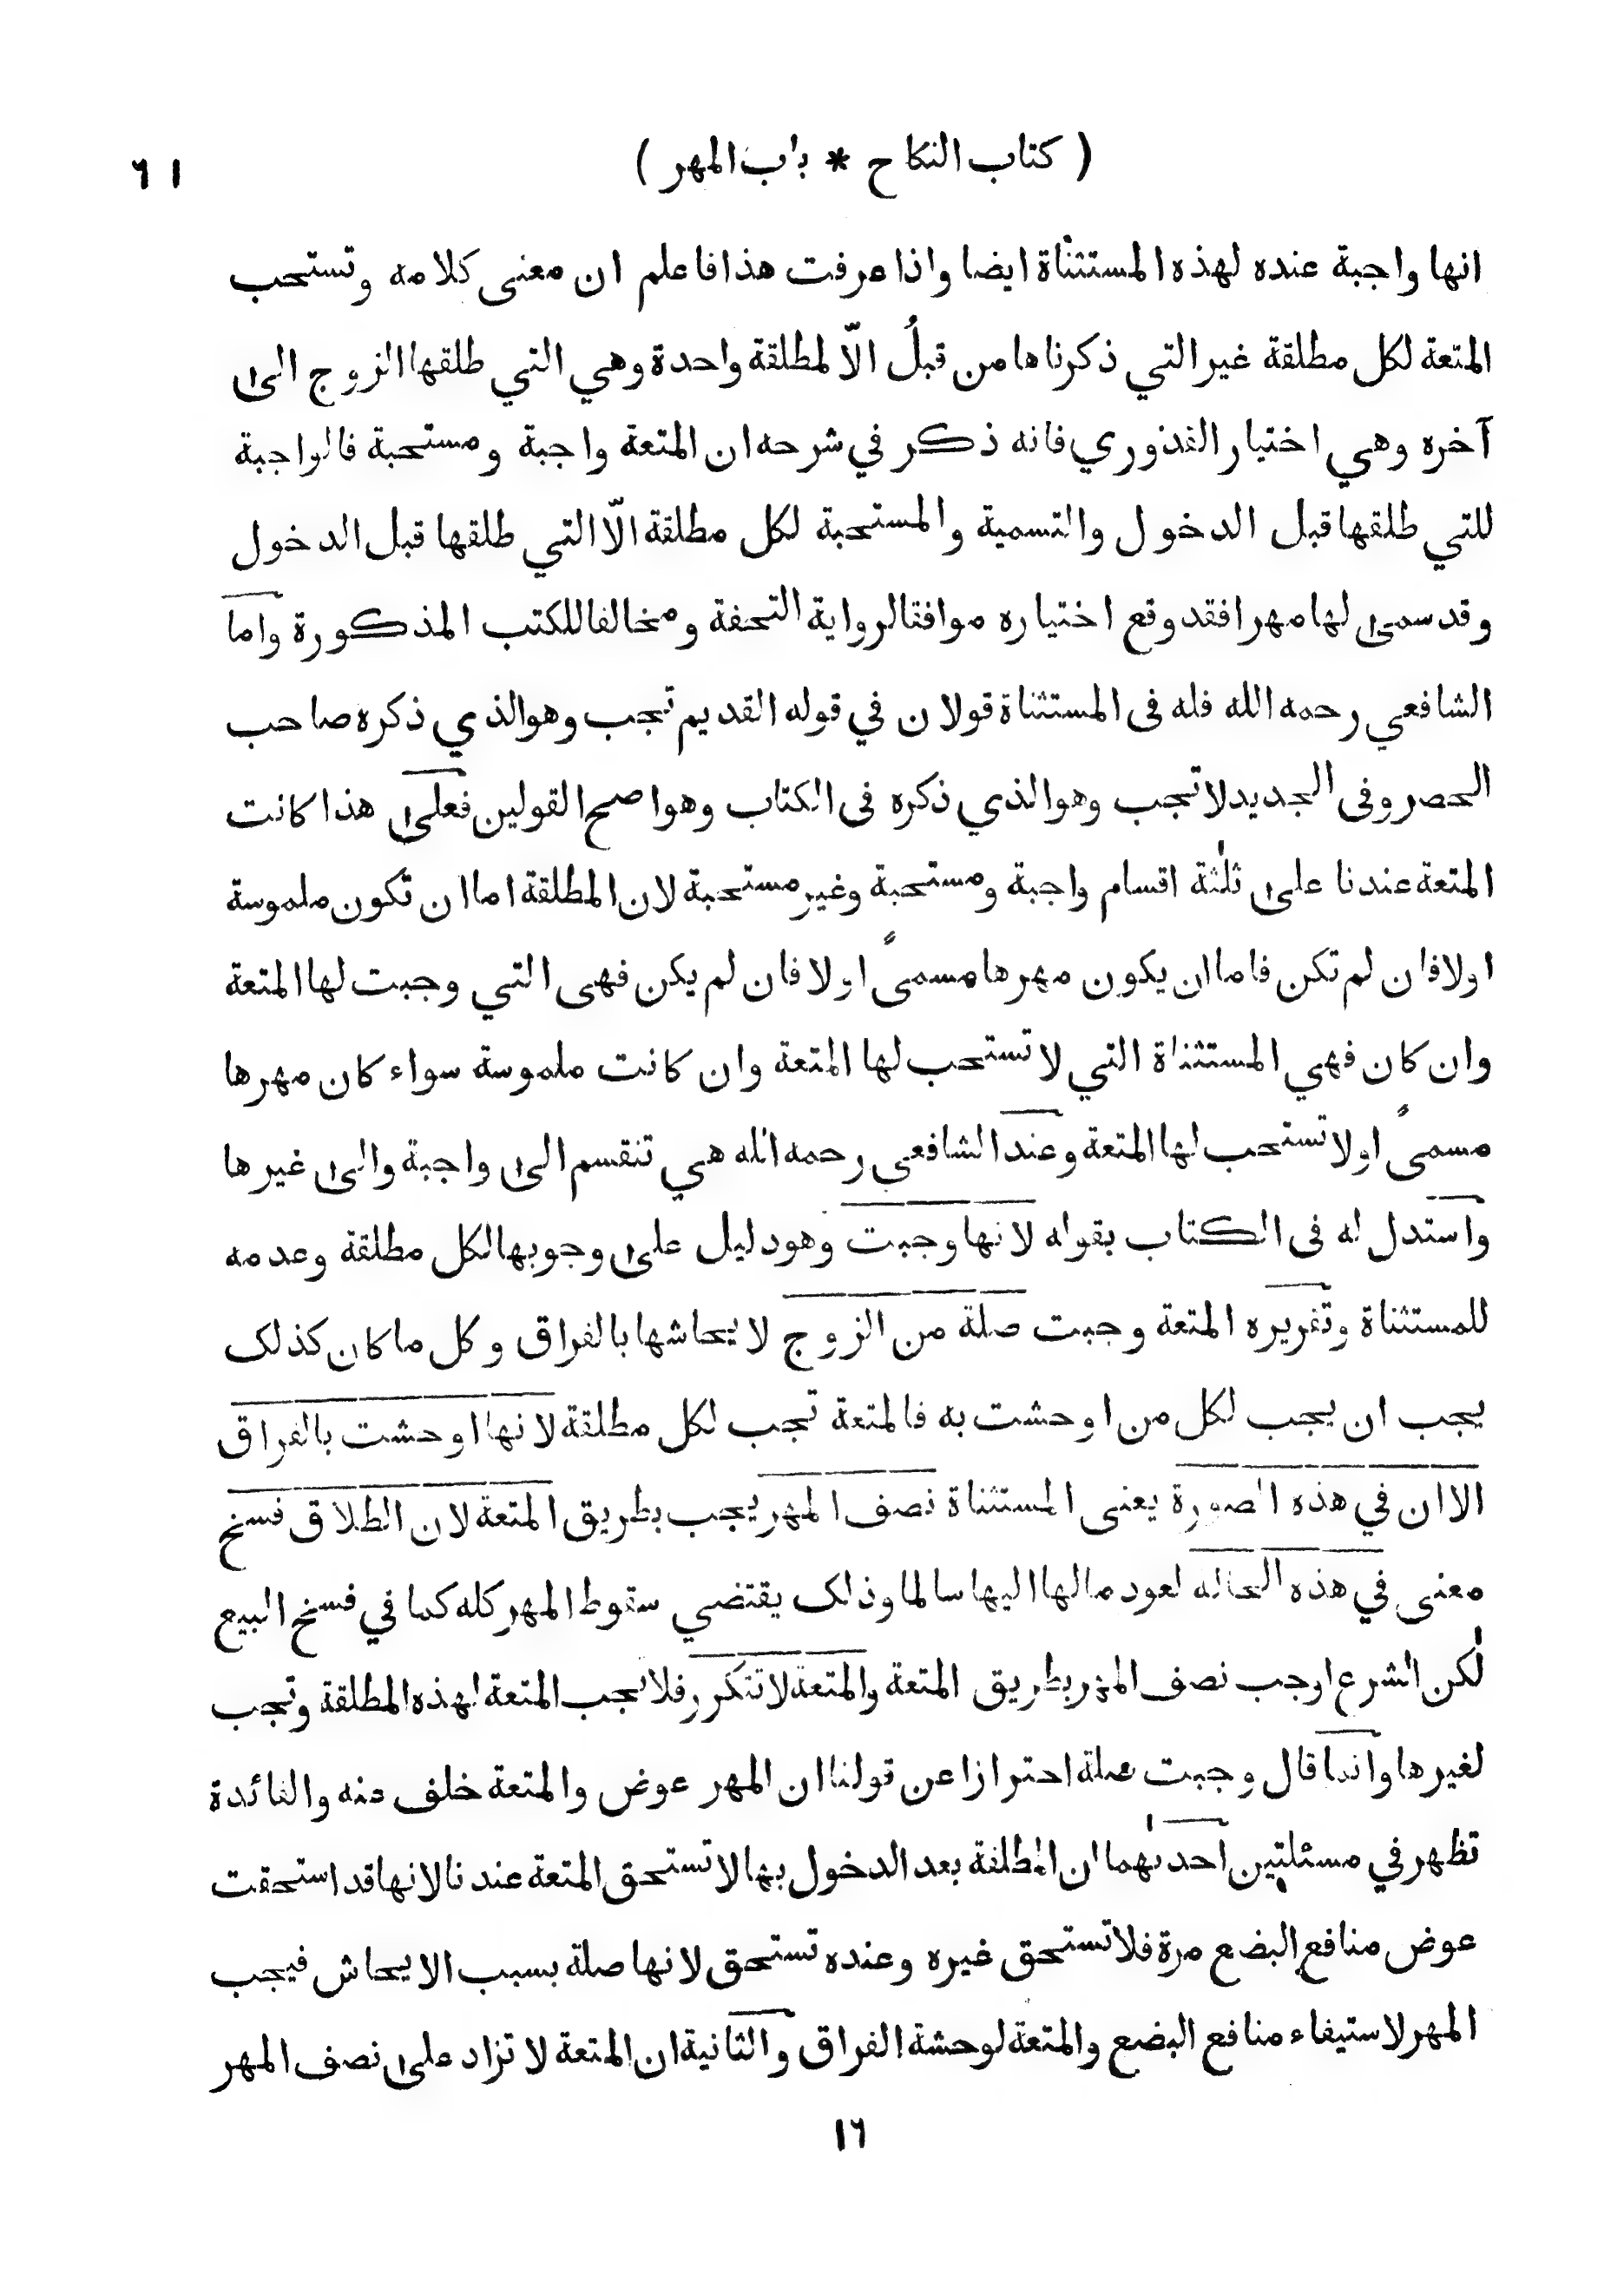 ( كتاب النكاح * باب المهر )
٦١
انها واجبة عنده لهذه المستثناة ايضا واذا عرفت هذا فاعلم ان معنى كلامه وتستحب
المتعة لكل مطلقة غير التي ذكرناها من قبلُ الّا لمطلقة واحدة وهي التي طلقها الزوج الى
آخره وهي اختيار القدوري فانه ذكر في شرحه ان المتعة واجبة ومستحبة فالواجبة
للتي طلقها قبل الدخول والتسمية والمستحبة لكل مطلقة الّا التي طلقها قبل الدخول
وقد سمى لها مهرا فقد وقع اختياره موافقا لرواية التحفة ومخالفا للكتب المذكورة واما
الشافعي رحمه الله فله فى المستثناة قولان في قوله القديم تجب وهو الذي ذكره صاحب
الحصر وفى الجديد لا تجب وهو الذي ذكره فى الكتاب وهو اصح القولين فعلى هذا كانت
المتعة عندنا على ثلٰثة اقسام واجبة ومستحبة وغير مستحبة لان المطلقة اما ان تكون ملموسة
او لا فان لم تكن فاما ان يكون مهرها مسمىً او لا فان لم يكن فهى التي وجبت لها المتعة
وان كان فهي المستثناة التي لا تستحب لها المتعة وان كانت ملموسة سواء كان مهرها
مسمىً او لا تستحب لها المتعة وعند الشافعي رحمه الله هي تنقسم الى واجبة والى غيرها
واستدل له فى الكتاب بقوله لانها وجبت وهو دليل على وجوبها لكل مطلقة وعدمه
للمستثناة وتقريره المتعة وجبت صلة من الزوج لايحاشها بالفراق وكل ما كان كذلك
يجب ان يجب لكل من اوحشت به فالمتعة تجب لكل مطلقة لانها اوحشت بالفراق
الا ان في هذه الصورة يعنى المستثناة نصف المهر يجب بطريق المتعة لان الطلاق فسخ
معنى في هذه الحالة لعود مالها اليها سالما وذلك يقتضي سقوط المهر كله كما في فسخ البيع
لٰكن الشرع اوجب نصف المهر بطريق المتعة والمتعة لا تتكرر فلا تجب المتعة لهذه المطلقة وتجب
لغيرها وانما قال وجبت صلة احترازا عن قولنا ان المهر عوض والمتعة خلف عنه والفائدة
تظهر في مسئلتين احدٰىهما ان المطلقة بعد الدخول بها لا تستحق المتعة عندنا لانها قد استحقت
عوض منافع البضع مرة فلا تستحق غيره وعنده تستحق لانها صلة بسبب الايحاش فيجب
المهر لاستيفاء منافع البضع والمتعة لوحشة الفراق والثانية ان المتعة لا تزاد على نصف المهر
١٦